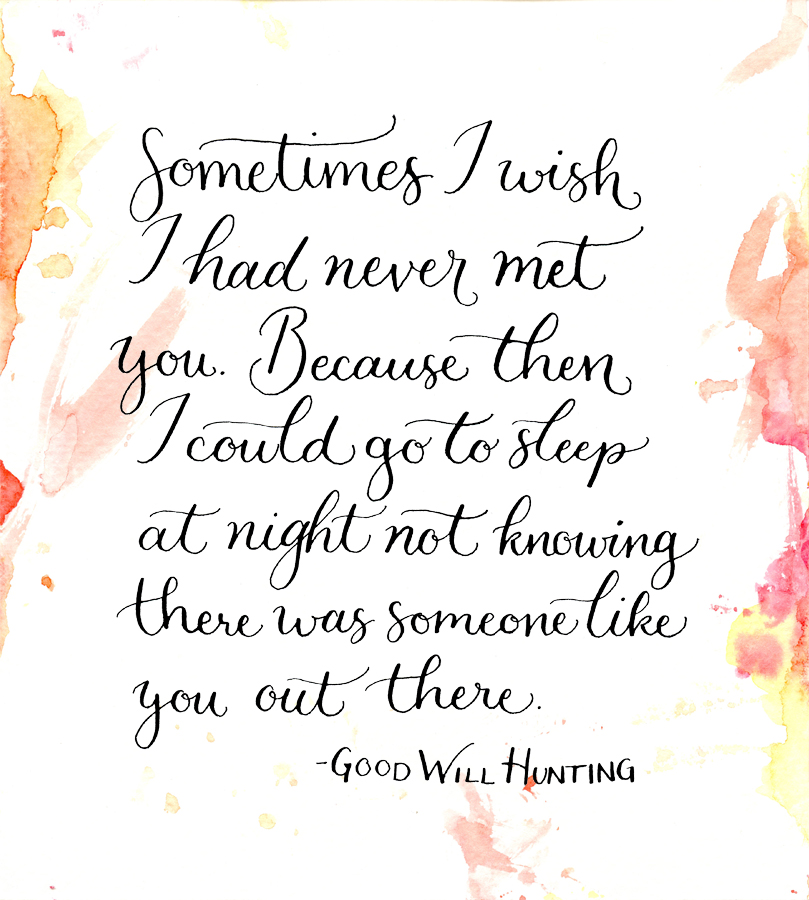 Sometimes I wish
I had never met
you. Because then
I could go to sleep
at night not knowing
there was someone like
you out there.
-GOOD WILL HUNTING